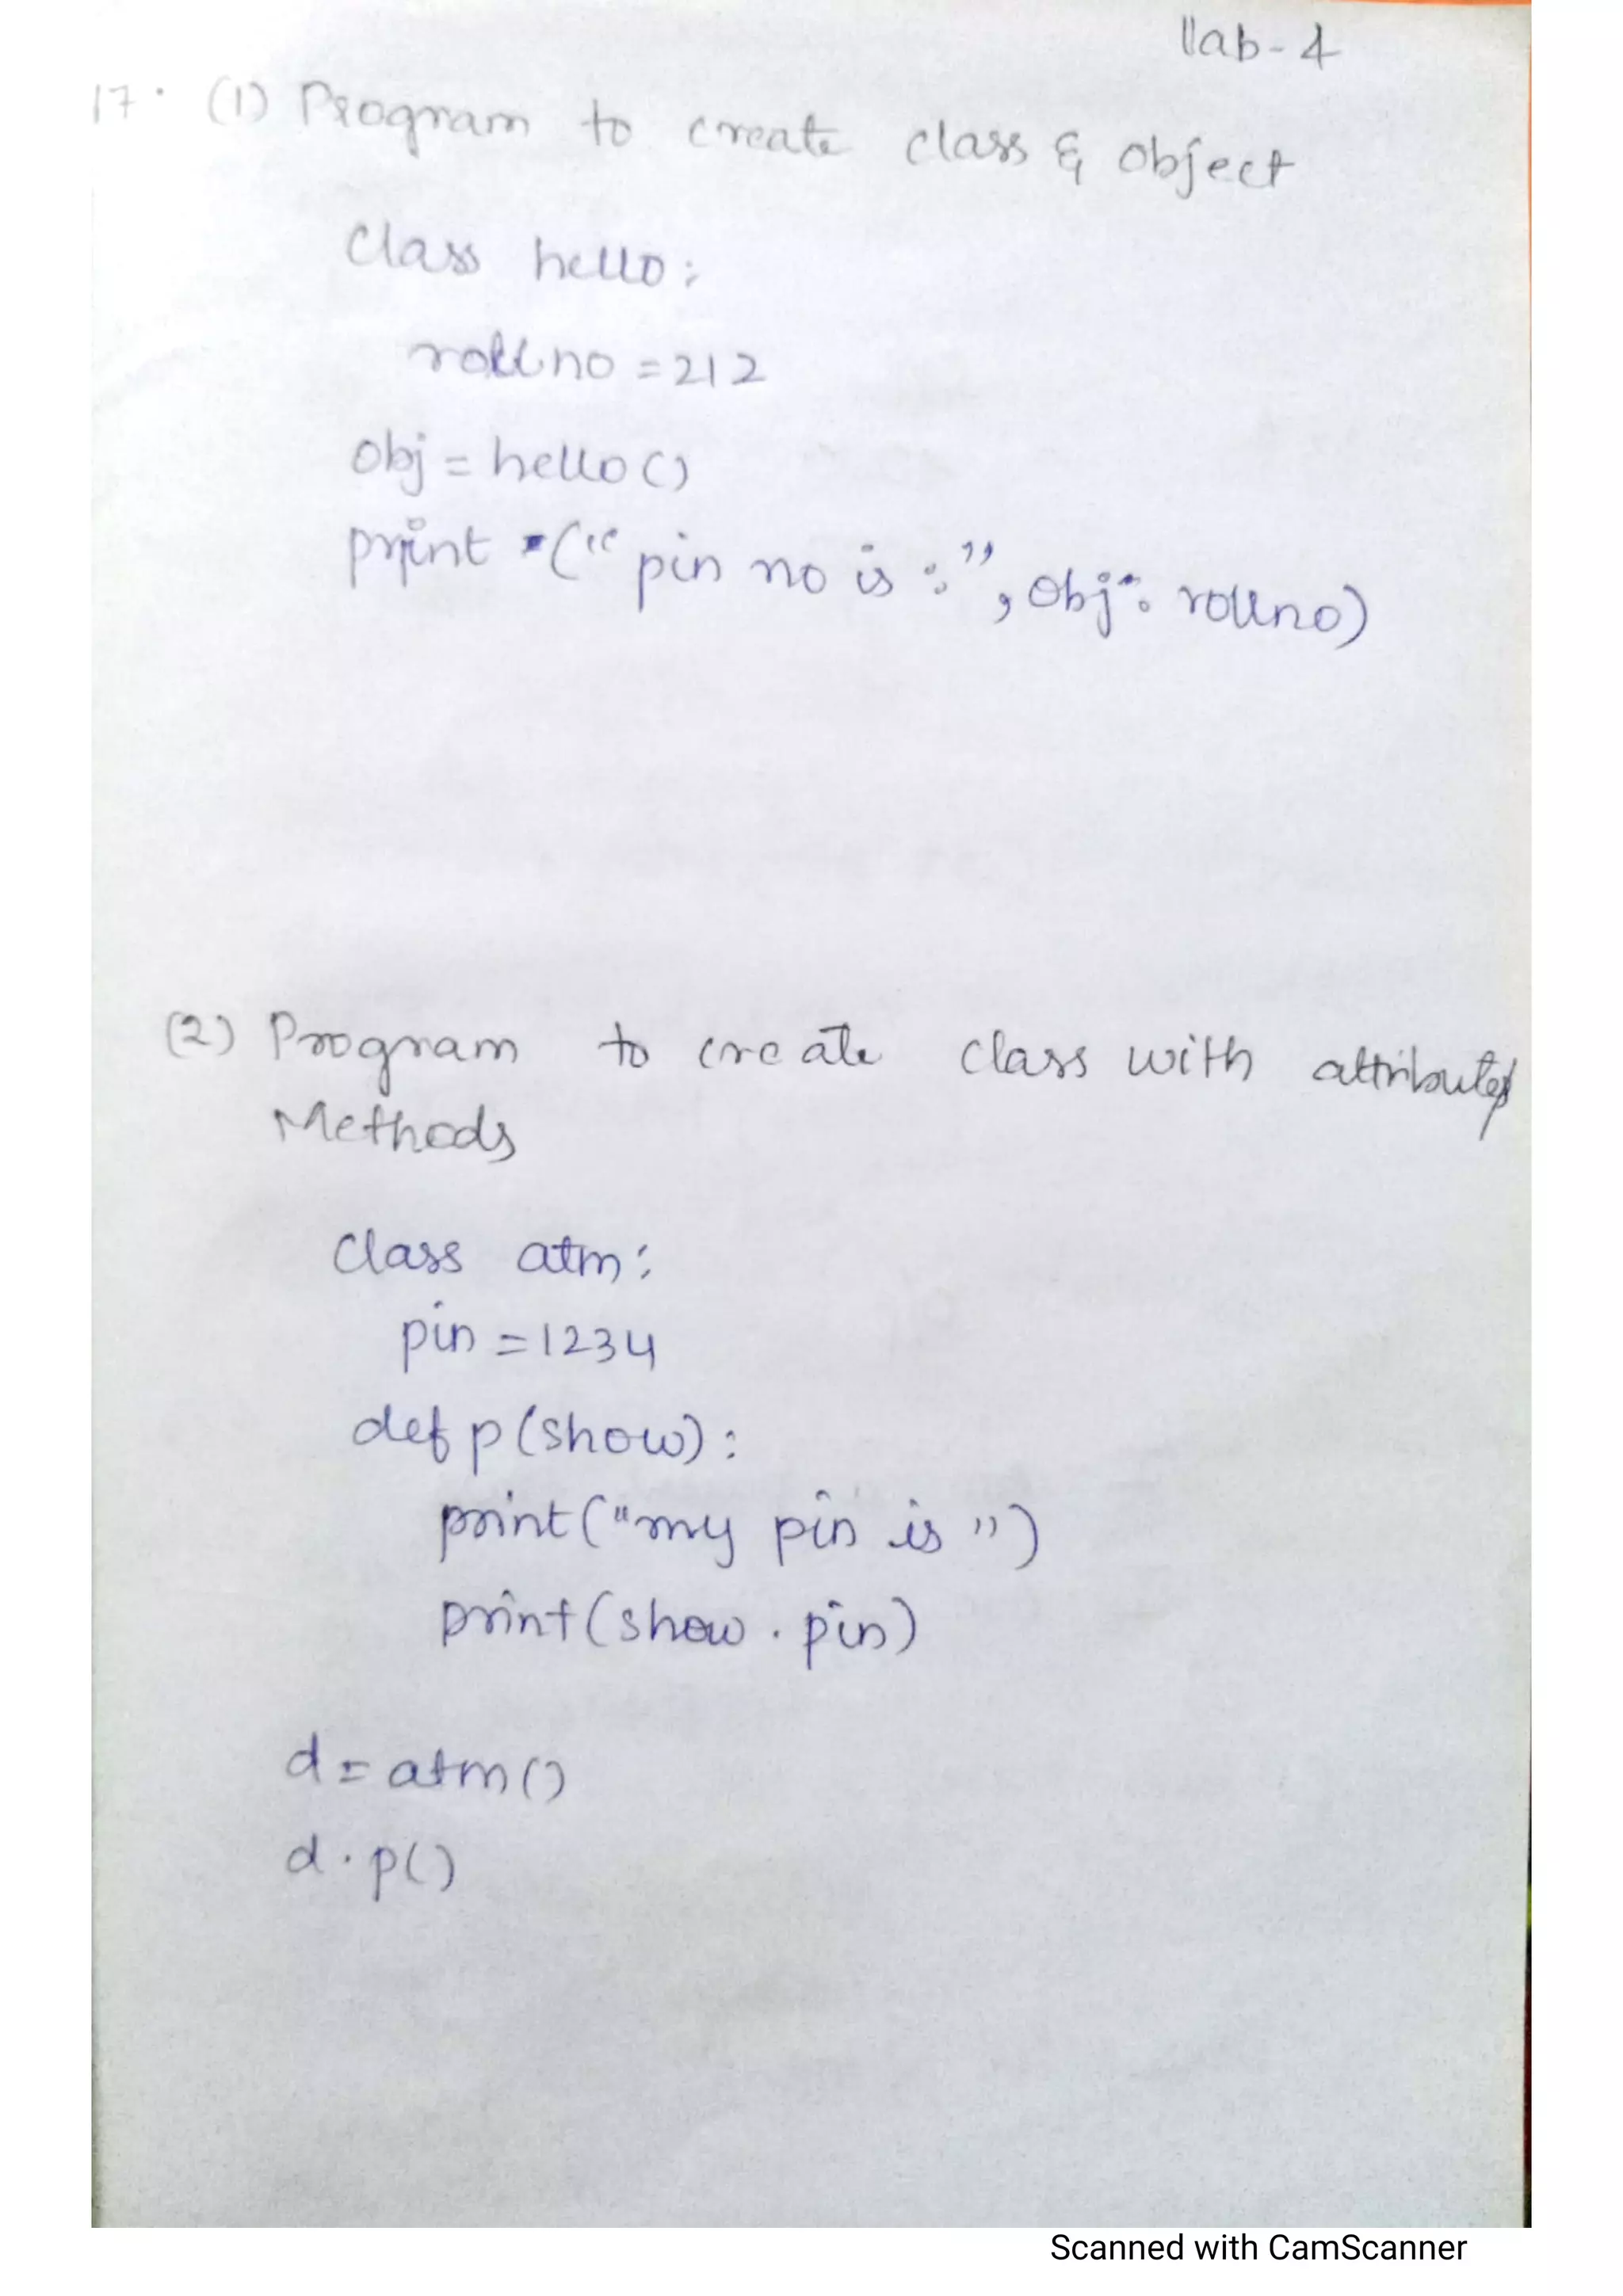 lab-4
17. (1) Program to create class & object
class hello:
rollno = 212
obj = hello()
print ("pin no is :", obj. rollno)
(2) Program to create class with attributes
Methods
class atm:
pin = 1234
def p(show):
print("my pin is ")
print(show . pin)
d = atm()
d.p()
Scanned with CamScanner